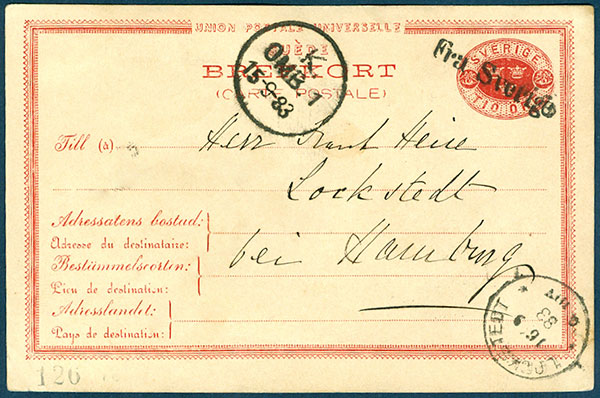 UNION POSTALE UNIVERSELLE
SUÈDE
BREFKORT
(CARTE POSTALE)
SVERIGE
TIO ÖRE
Från Sverige
K
OMB 1
15-9-83
Till (à)
Herr Frank Heise
Lockstedt
bei Hamburg
Adressatens bostad:
Adresse du destinataire:
Bestämmelseorten:
Lieu de destination:
Adresslandet:
Pays de destination:
LOCKSTEDT
16 9
83
120